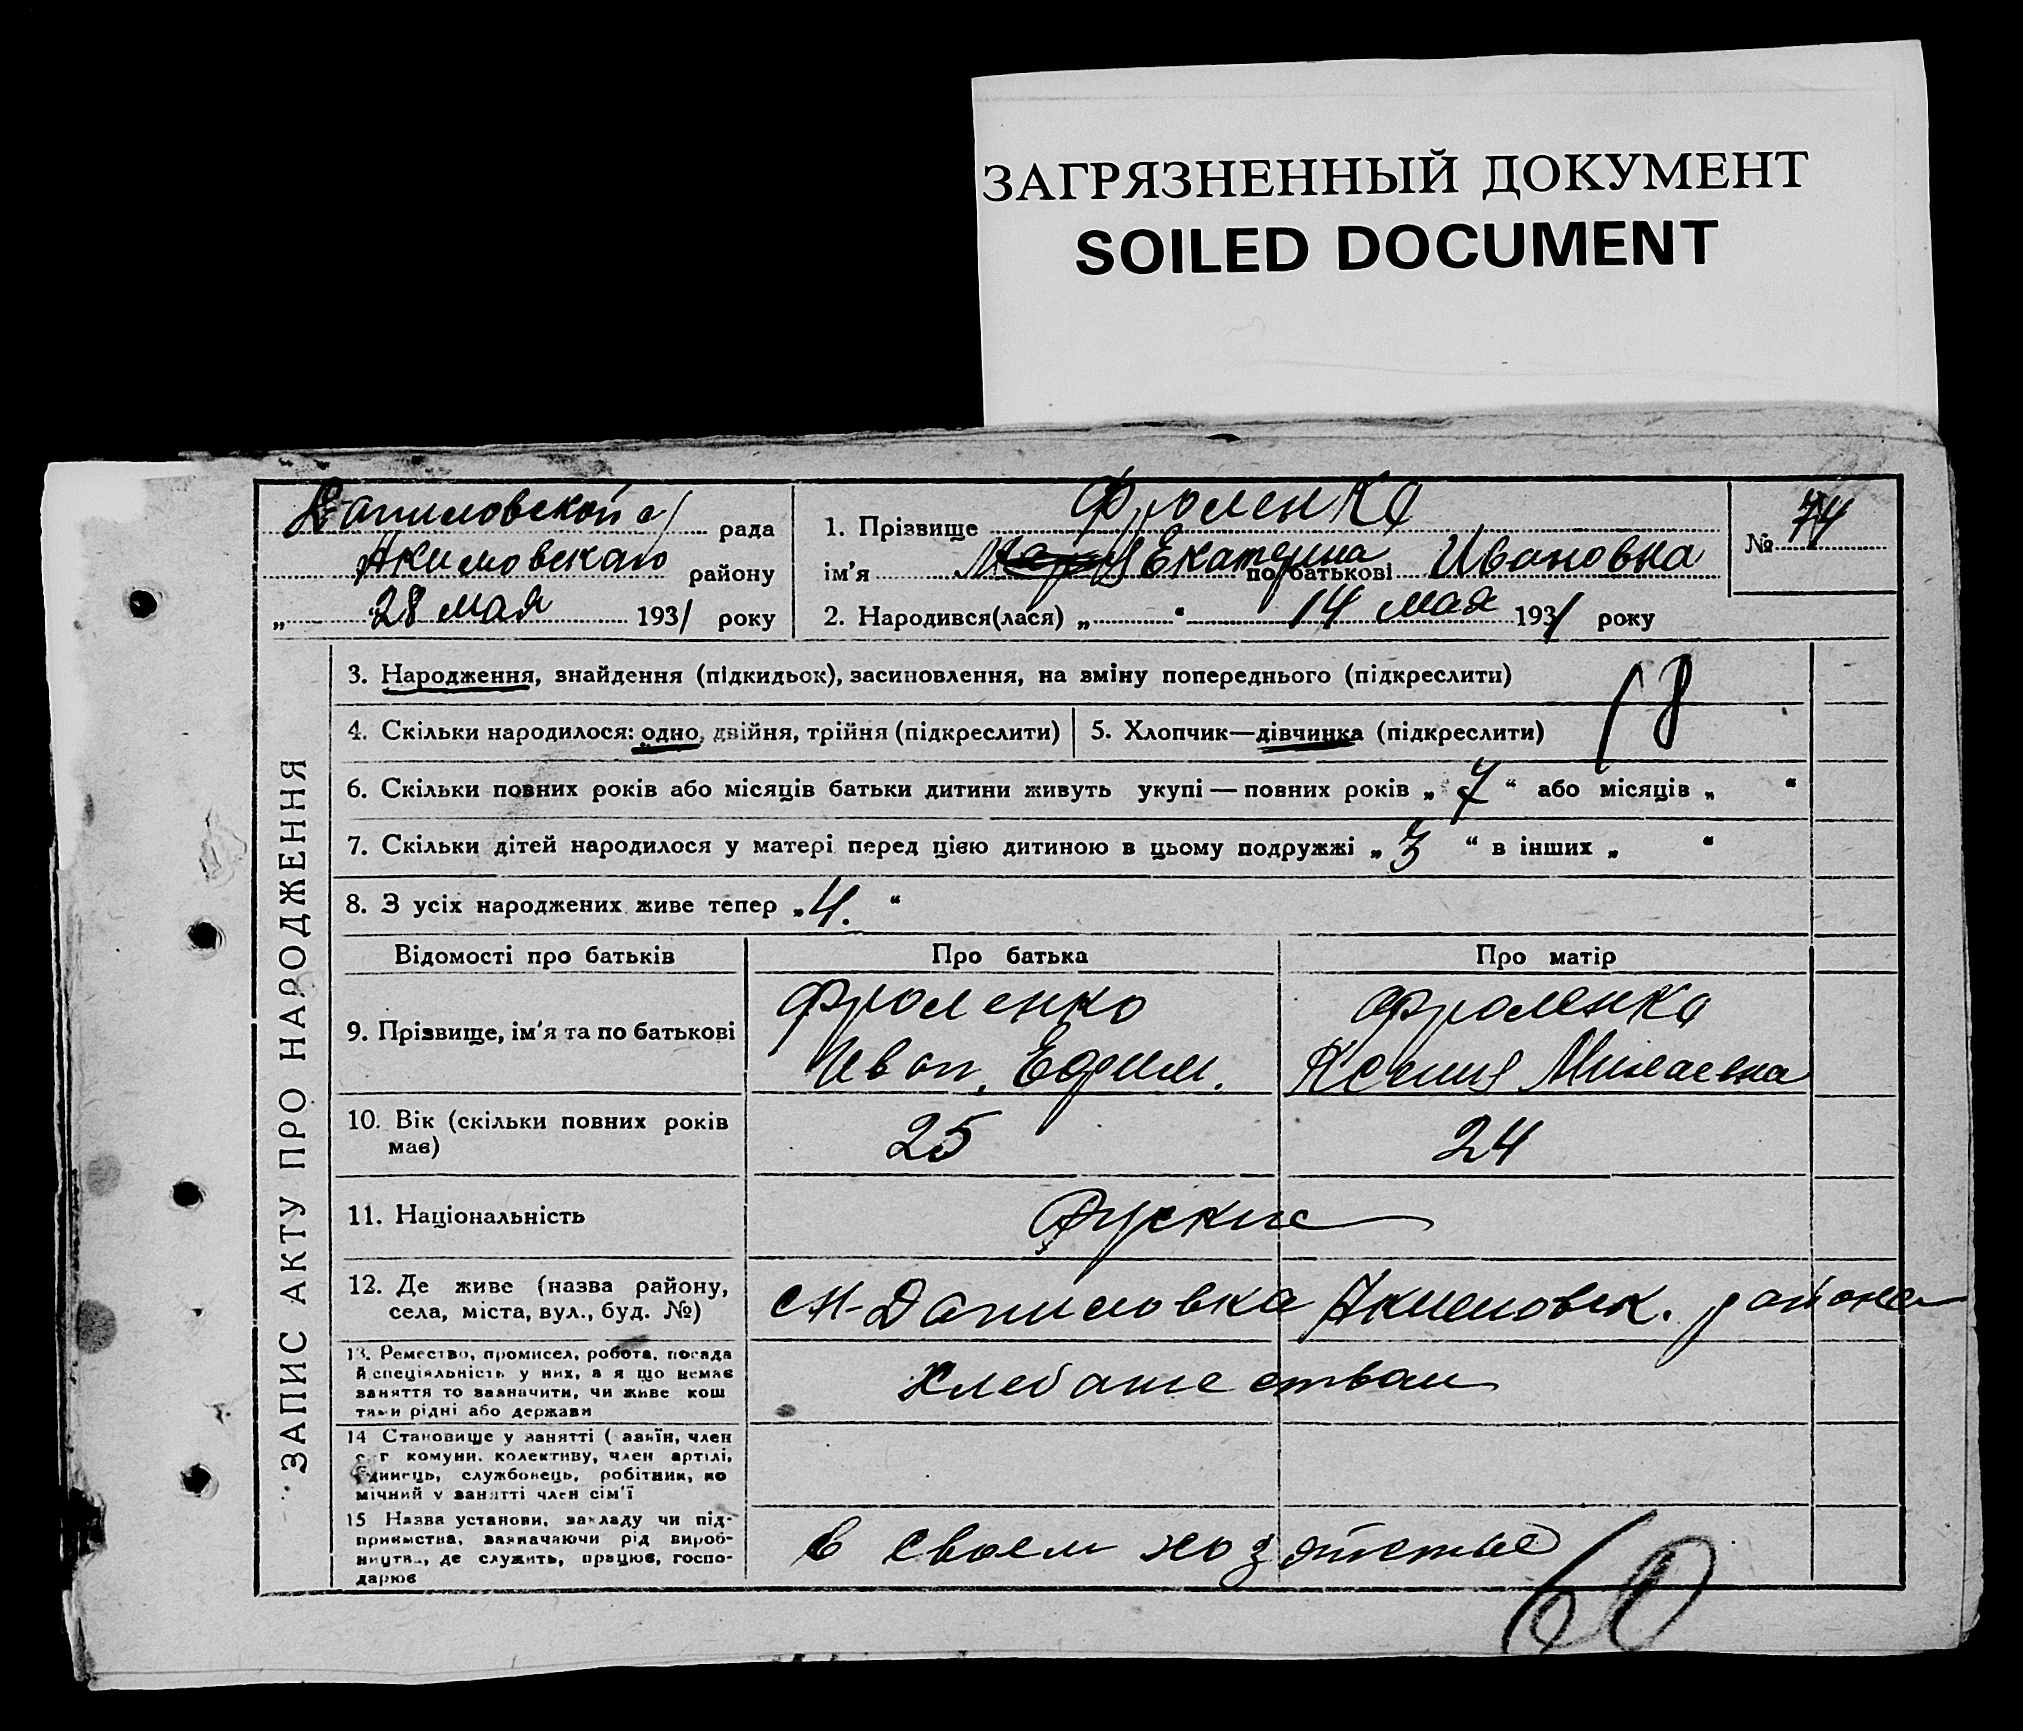 ЗАГРЯЗНЕННЫЙ ДОКУМЕНТ
SOILED DOCUMENT
Даниловской с/ рада
Акимовскаго району
„ 28 мая 1931 року
1. Прізвище Фроленко
ім'я Екатерина по батькові Ивановна
2. Народився(лася) „ “ 14 мая 1931 року
№ 74
ЗАПИС АКТУ ПРО НАРОДЖЕННЯ
3. Народження, знайдення (підкидьок), засиновлення, на зміну попереднього (підкреслити)
18
4. Скільки народилося: одно, двійня, трійня (підкреслити)
5. Хлопчик—дівчинка (підкреслити)
6. Скільки повних років або місяців батьки дитини живуть укупі — повних років „ 7 “ або місяців „ “
7. Скільки дітей народилося у матері перед цією дитиною в цьому подружжі „ 3 “ в інших „ “
8. З усіх народжених живе тепер „ 4. “
Відомості про батьків
Про батька
Про матір
9. Прізвище, ім'я та по батькові
Фроленко
Иван. Ефим.
Фроленко
Ксения
10. Вік (скільки повних років
має)
25
24
11. Національність
Руские
12. Де живе (назва району,
села, міста, вул., буд. №)
Даниловка Акимовск. района
13. Ремество, промисел, робота, посада
й спеціяльність у них, а я що немає
заняття то зазначити, чи живе кош
тами рідні або держави
Хлебашеством
14 Становище у занятті ( авяїн, член
с г комуни. колективу, член артілі,
єдинець, службовець, робітник, по
мічний у занятті член сім'ї
15 Назва установи, закладу чи під-
приємства, зазначаючи рід вироб-
ництв., де служить, працює, госпо-
дарює
в своем хозяйстве
60